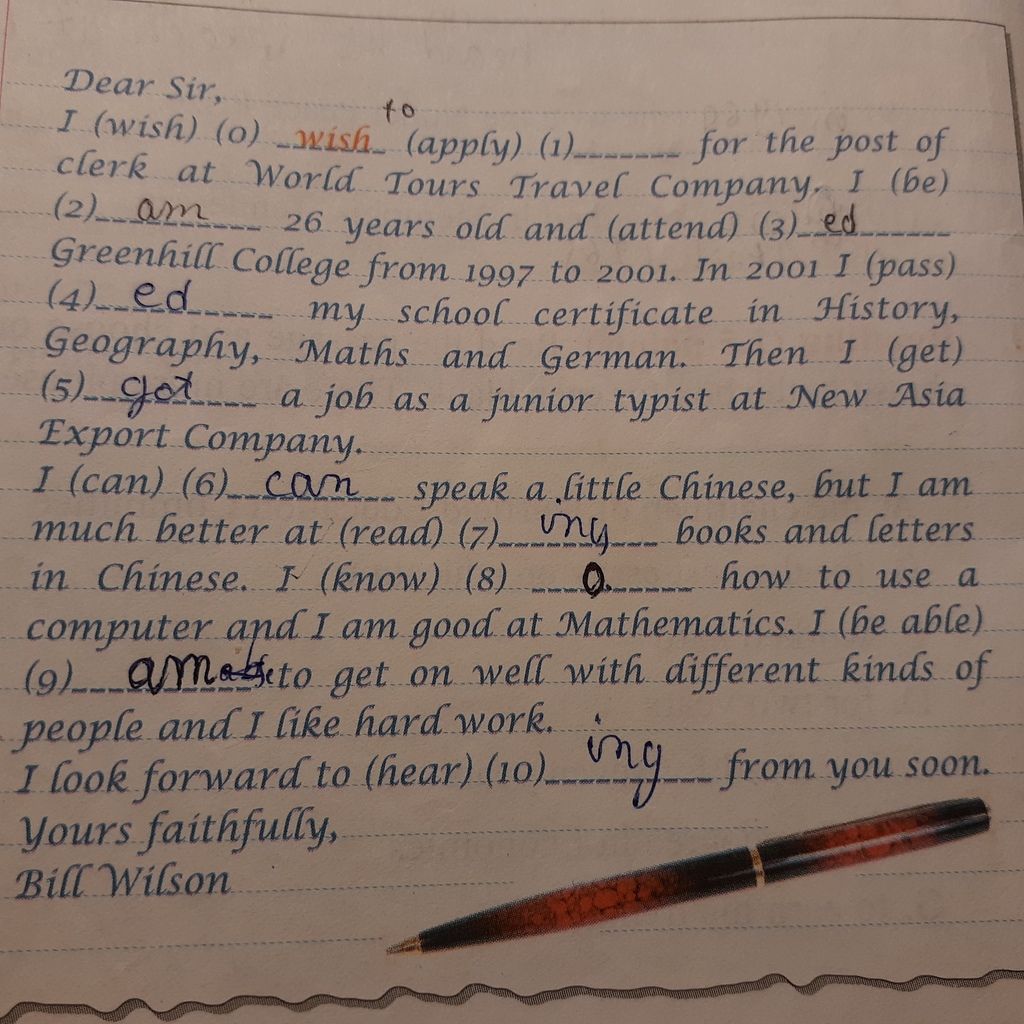 Dear Sir,
to
I (wish) (0) wish (apply) (1)_______ for the post of
clerk at World Tours Travel Company. I (be)
(2) am 26 years old and (attend) (3) ed
Greenhill College from 1997 to 2001. In 2001 I (pass)
(4) ed my school certificate in History,
Geography, Maths and German. Then I (get)
(5) got a job as a junior typist at New Asia
Export Company.
I (can) (6) can speak a little Chinese, but I am
much better at (read) (7) ing books and letters
in Chinese. I (know) (8) 0 how to use a
computer and I am good at Mathematics. I (be able)
(9) am able to get on well with different kinds of
people and I like hard work.
I look forward to (hear) (10) ing from you soon.
Yours faithfully,
Bill Wilson